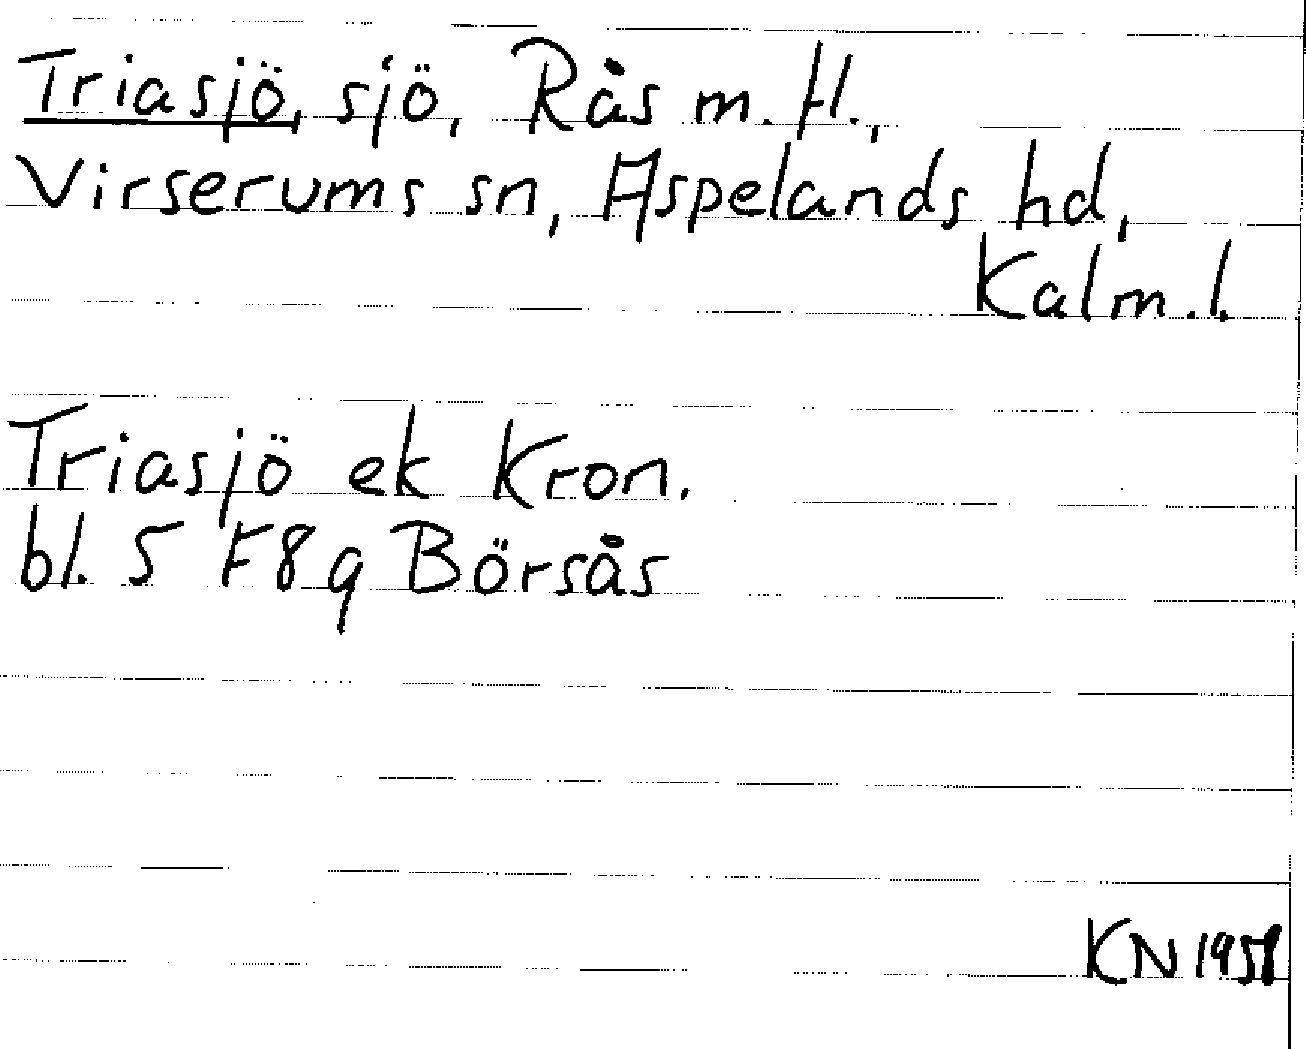 Triasjö, sjö, Rås m. fl.,
Virserums sn, Aspelands hd,
Kalm. l.
Triasjö ek Kron.
bl. 5 F8g Börsås
KN 1958